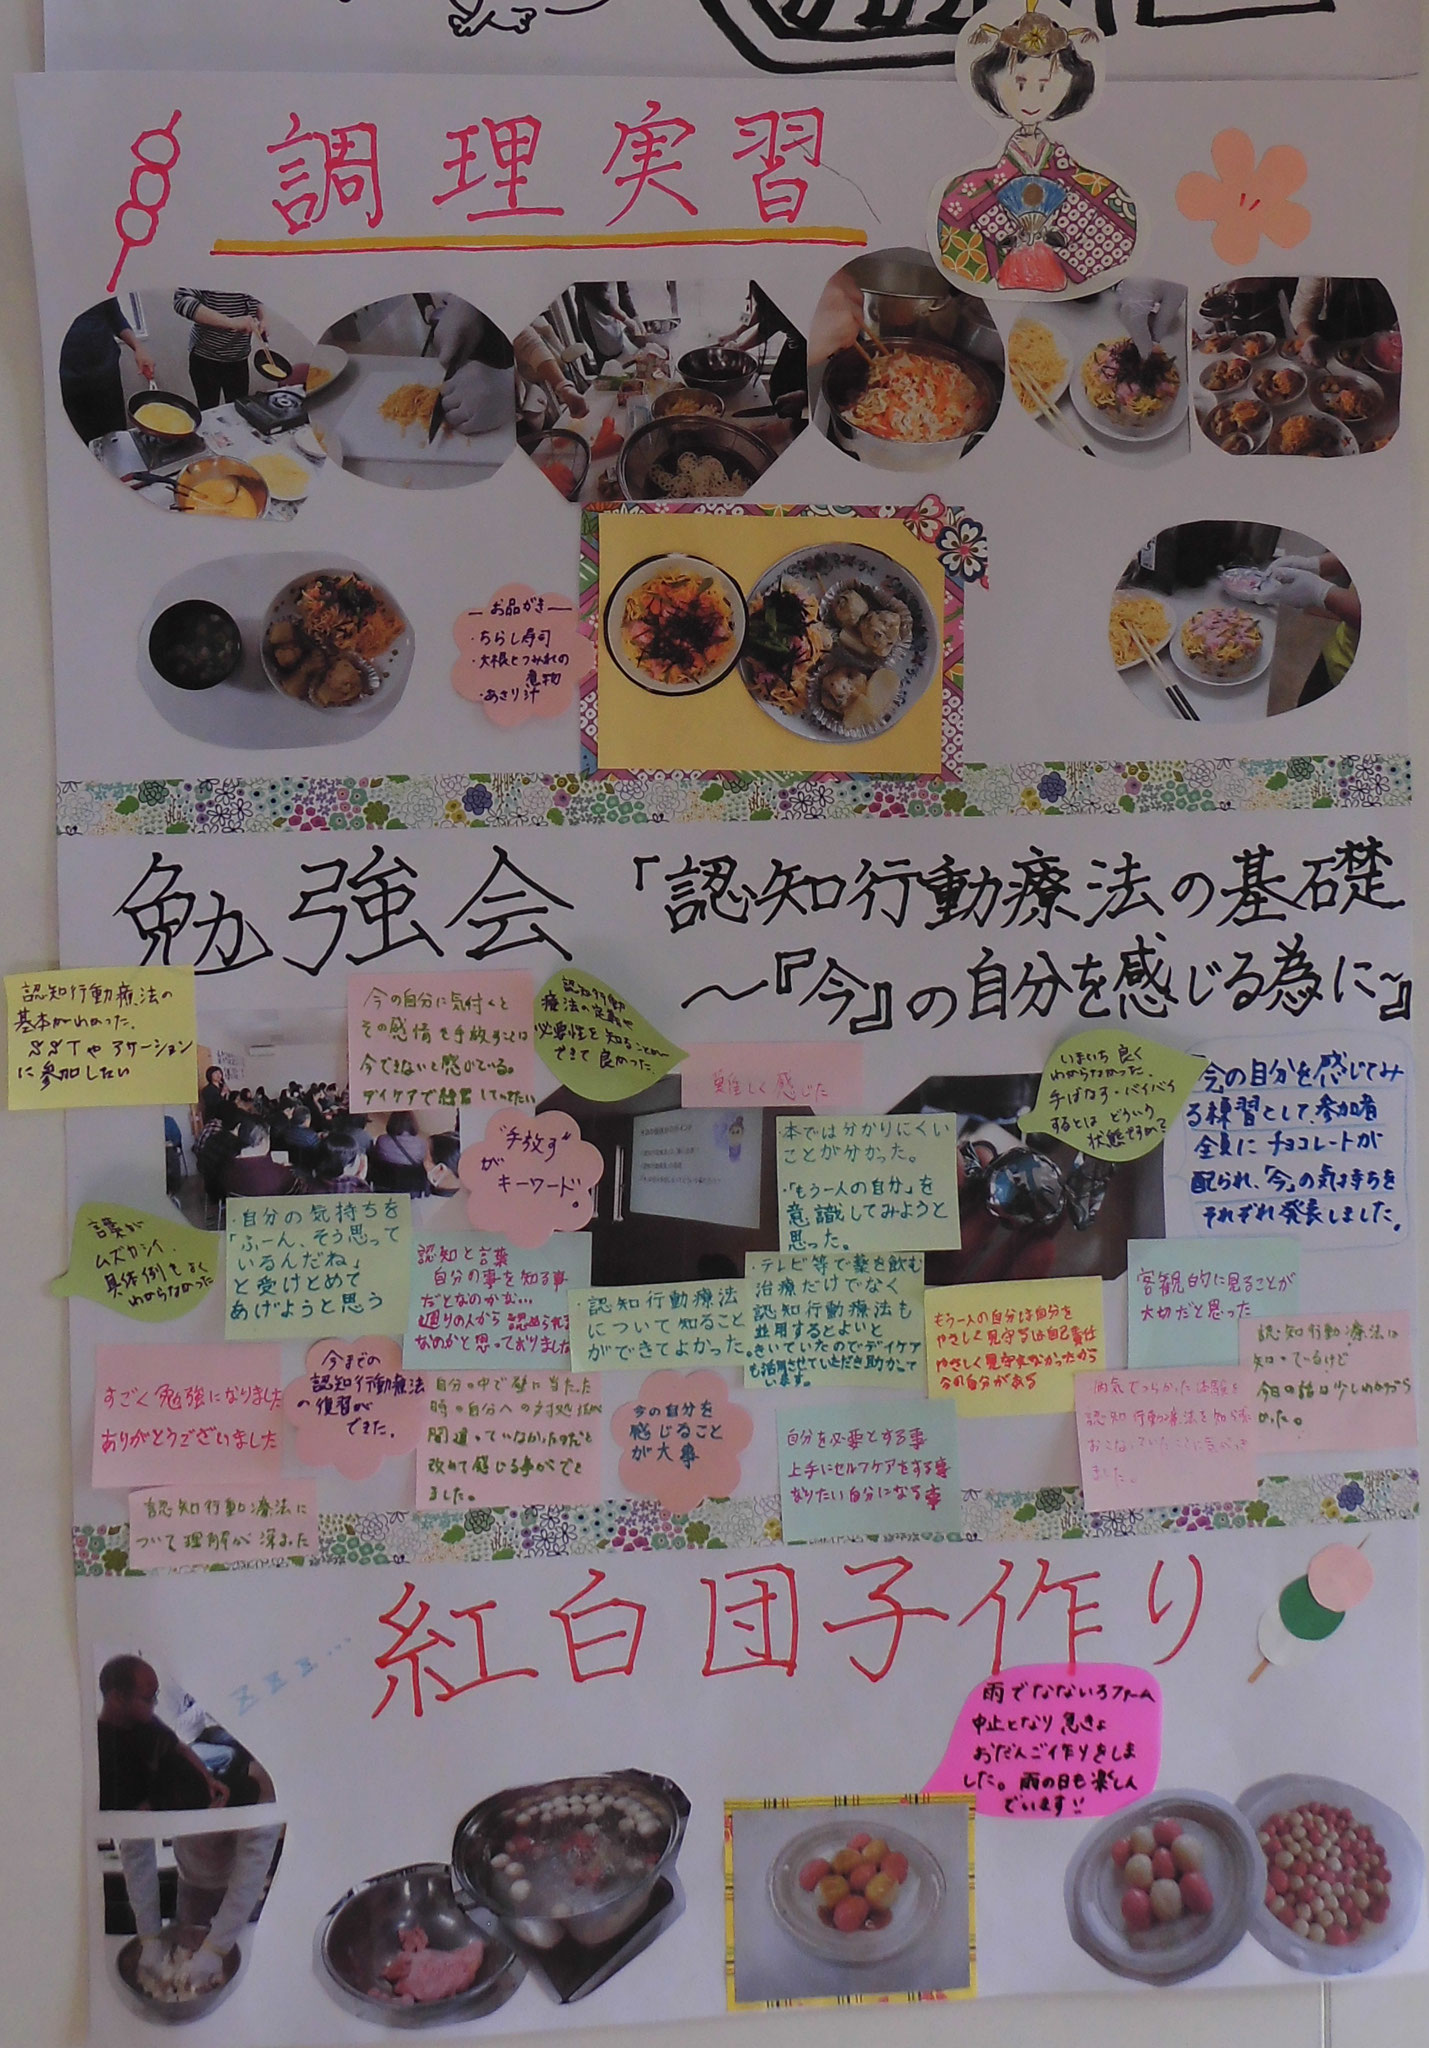 調理実習
お品がき
・ちらし寿司
・大根とつみれの
煮物
・あさり汁
勉強会
「認知行動療法の基礎
～『今』の自分を感じる為に～』
認知行動療法の
基本がわかった。
SSTやアサーション
に参加したい
今の自分に気付くと
その感情を手放すことは
今できないと感がている。
デイケアで練習していきたい
認知行動
療法の定義や
必要性を知ることが
できて良かった。
難しく感じた
いまいち良く
わからなかった。
手ばなす・バイバイ
するとはどういう
状態ですかって
「今」の自分を感じてみ
る練習として、参加者
全員にチョコレートが
配られ、「今」の気持ちを
それぞれ発表しました。
"手放す"
が
キーワード。
・本では分かりにくい
ことが分かった。
・「もう一人の自分」を
意識してみようと
思った。
言葉が
ムズカシイ、
具体例もよく
わからなかった
・自分の気持ちを
「ふーん、そう思って
いるんだね」
と受けとめて
あげようと思う
認知と言葉
自分の事を知る事
だとなのかな…
周りの人から認められる
なのかと思っておりました
・認知行動療法
について知ること
ができてよかった。
・テレビ等で薬を飲む
治療だけでなく
認知行動療法も
並用するとよいと
きいていたのでデイケア
も活用させていただき助かって
います。
もう一人の自分は自分を
やさしく見守るは自己責任
やさしく見守れなかったから
今の自分がある
客観的に見ることが
大切だと思った
認知行動療法は
知っているけど
今日の話は少しわかづら
かった。
すごく勉強になりました
ありがとうございました
今までの
認知行動療法
の復習が
できた。
自分の中で壁に当たった
時の自分への対処法が
間違っていなかったのだと
改めて感じる事ができ
ました。
今の自分を
感じること
が大事
自分を必要とする事
上手にセルフケアをする事
なりたい自分になる事
病気でつらかった体験を
認知行動療法を知らず
おこなっていたことに気がつき
ました。
認知行動療法に
ついて理解が深まった
紅白団子作り
zzz...
雨でなないろファーム
中止となり急きょ
おだんご作りをしま
した。雨の日も楽しん
でいます!!